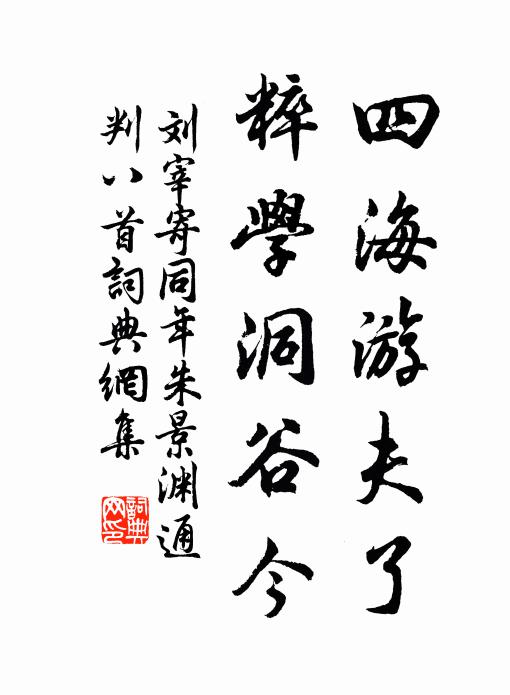 四海游夫了
粹學洞谷今
刘宰寄同年朱景渊通
判八首詞典網集
詞典網印